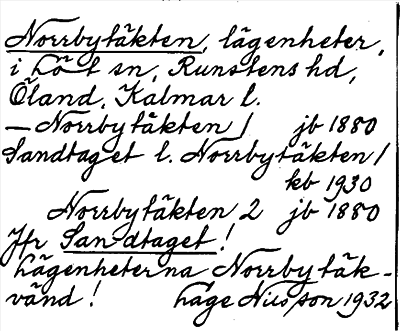 Norrbytäkten, lägenheter,
i Löt sn, Runstens hd,
Öland, Kalmar l.
— Norrbytäkten 1 jb 1880
Sandtaget l. Norrbytäkten 1
kb 1930
Norrbytäkten 2 jb 1880
Jfr Sandtaget!
Lägenheterna Norrbytäk-
vänd! Håge Nilsson 1932